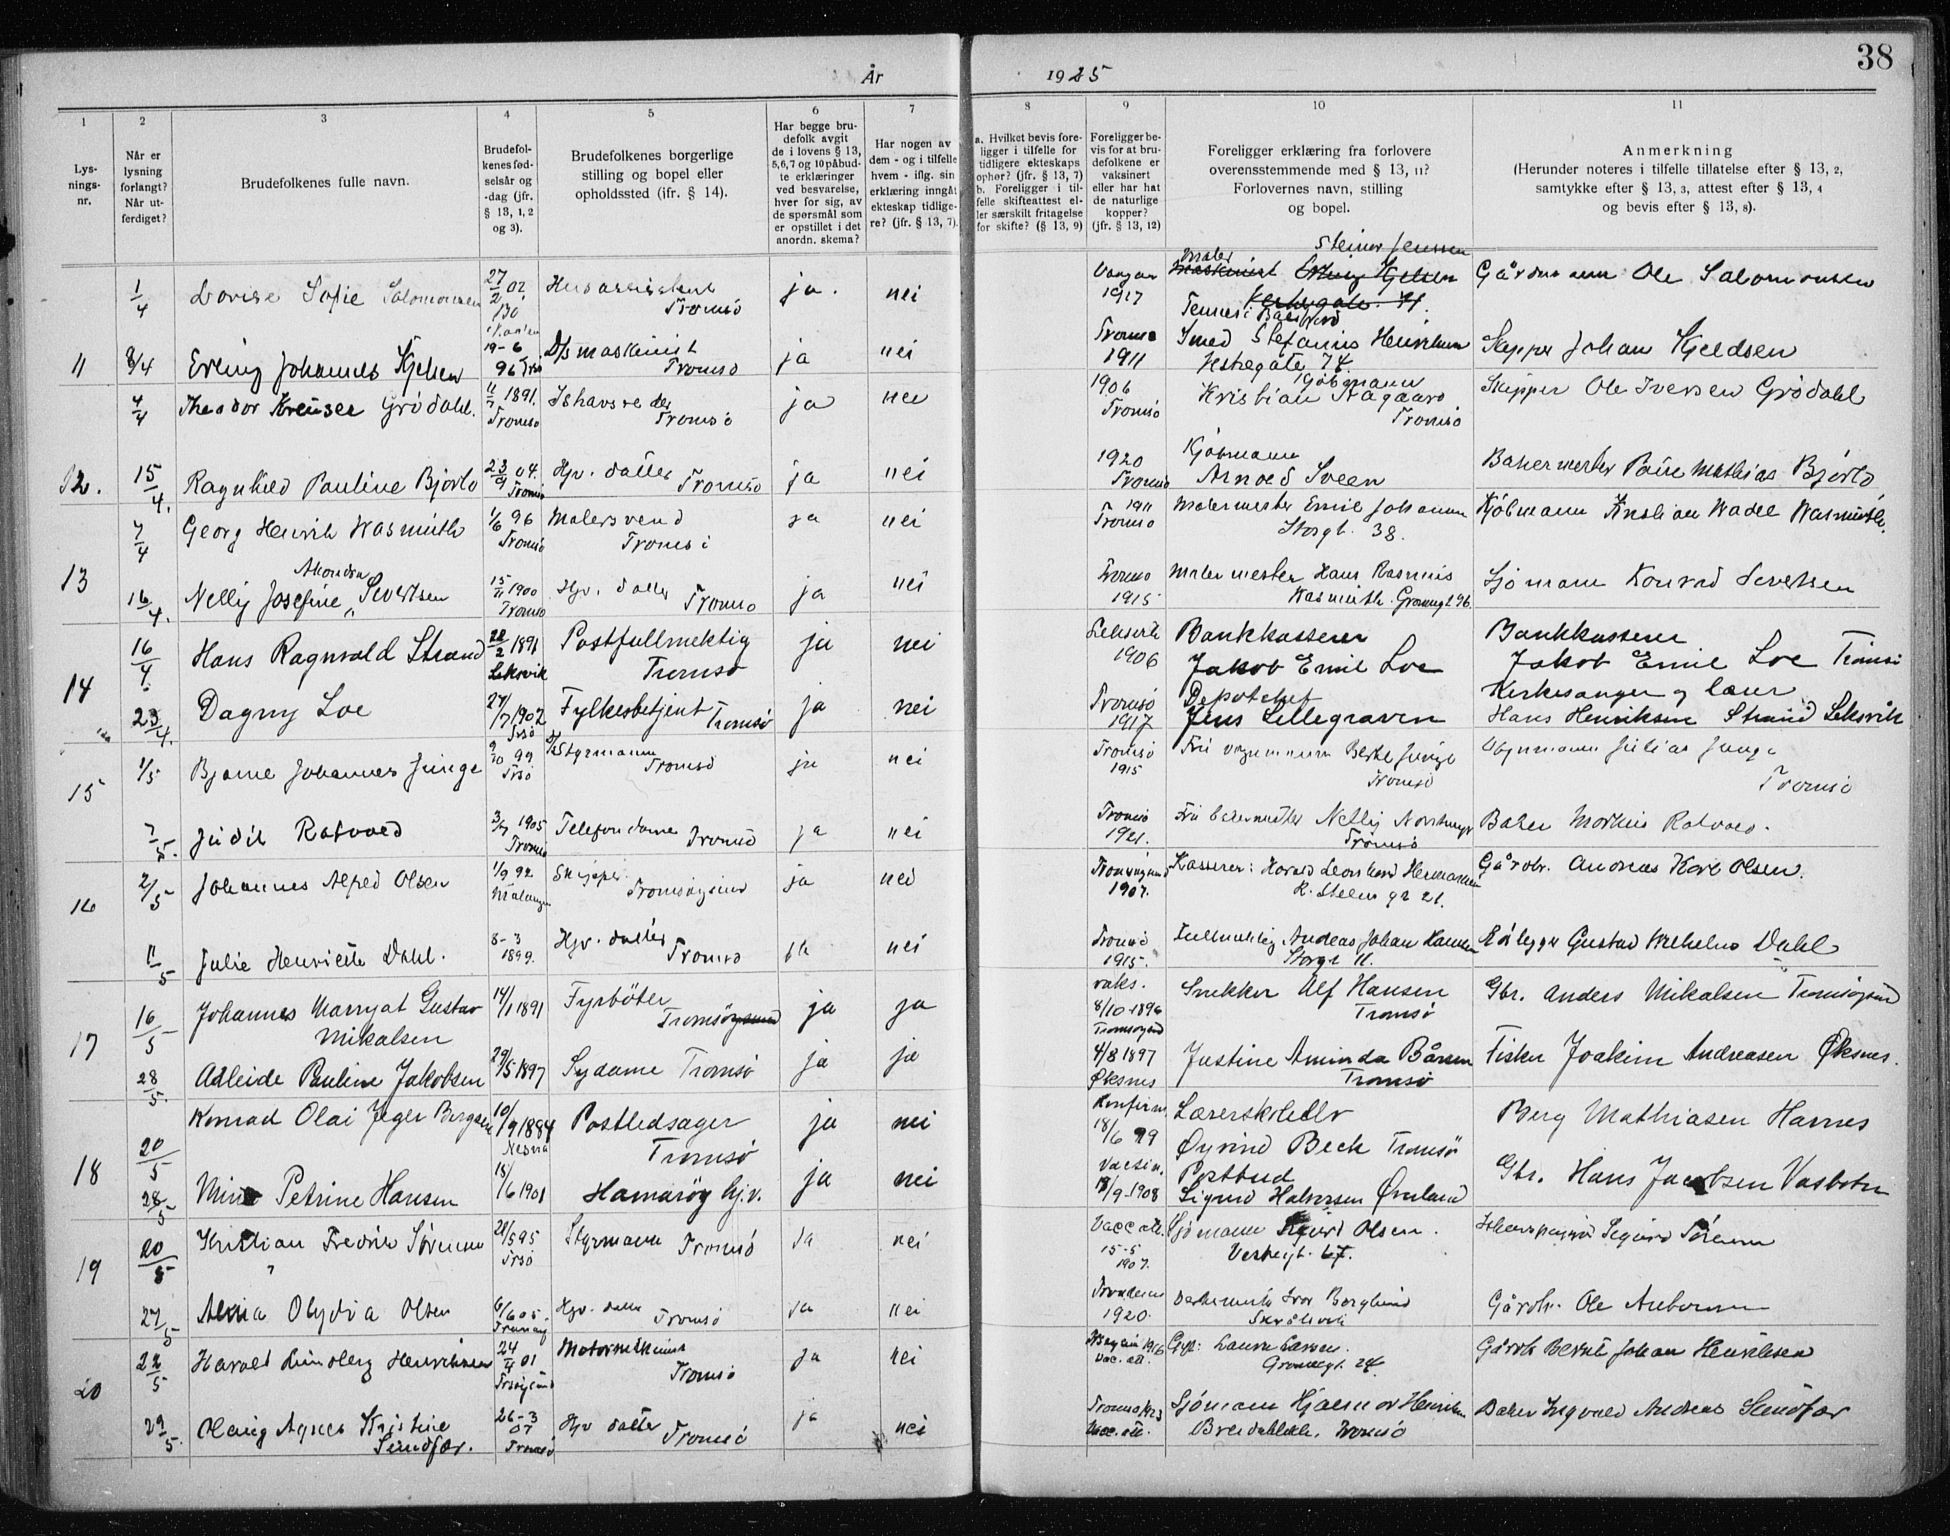 År 1925
38
1
2
3
4
5
6
7
8
9
10
11
Lys-
nings-
nr.
Når er
lysning
forlangt?
Når ut-
ferdiget?
Brudefolkenes fulle navn.
Brudefol-
kenes fød-
selsår og
-dag (jfr.
§ 13, 1, 2
og 3).
Brudefolkenes borgerlige
stilling og bopel eller
opholdssted (ifr. § 14).
Har begge bru-
defolk avgit
de i lovens § 13,
5,6,7 og 10 påbud-
te erklæringer
ved besvarelse,
hver for sig, av
de spørsmål som
er opstillet i det
anordn. skema?
Har nogen av
dem - og i tilfelle
hvem - iflg. sin
erklæring inngåt
ekteskap tidlige-
re? (jfr. § 13, 7).
a. Hvilket bevis fore-
ligger i tilfelle for
tidligere ekteskaps
ophør? (jfr. § 13, 7)
b. Foreligger i til-
felle skifteattest el-
ler særskilt fritagelse
for skifte? (§ 13, 9)
Foreligger be-
vis for at bru-
defolkene er
vaksinert
eller har hat
de naturlige
kopper?
(jfr. § 13, 12)
Foreligger erklæring fra forlovere
overensstemmende med § 13, 11?
Forlovernes navn, stilling
og bopel.
Anmerkning
(Herunder noteres i tilfelle tillatelse efter § 13, 2,
samtykke efter § 13, 3, attest efter § 13, 4
og bevis efter § 13, 8).
1/4 Lovise Sofie Salomonsen 27/2 02 Husassistent Tromsø ja. nei 1917 Maler Steinar Jenssen Gårdmann Ole Salomonsen
11 8/4 Erling Johannes Kjelsen 19-6 96 Trsø D/s maskinist Tromsø ja nei Tromsø 1911 Smed Stefanus Henriksen Vestregate 74. Skipper Johan Kjeldsen
4/4 Theodor Kreuser Grödahl. 1891. Tromsø Tromsö ja nei 1906 Tromsö Kjöbmann Kristian Aagaard Tromsö Skipper Ole Iversen Grödahl
12. 15/4. Ragnhild Pauline Bjørlo 23/9 04. Tromsø Hjv. datter Tromsö ja nei 1920 Tromsø Kjøbmann Arnold Sveen Bakermester Mathias Bjørlo
7/4 Georg Henrik Wasmuth 1/6 96 Tromsø Malersvend Tromsø ja nei 1911 Tromsø Malermester Emil Johansen Storgt. 38. Kjøbmann Kristian Wadel Wasmuth.
13 16/4. Nelly Josefine Sivertsen 15/11 1900 Tromsø Hjv. datter Tromsø ja nei Tromsø 1915 Malermester Hans Rasmus Wasmuth. Grønnegt 96. Sjømann Konrad Sivertsen
14 16/4. Hans Ragnvald Strand 28/2 1891 Leksvik Postfullmektig Tromsø ja nei 1906 Bankkasserer Jakob Emil Loe Bankkasserer Jakob Emil Loe Tromsø
23/4. Dagny Loe 27/7 1902 Trsø Fylkesbetjent Tromsø ja nei Tromsø 1917 Depotchef Jens Lillegraven Kirkesanger og lærer Hans Henriksen Strand Leksvik
15 1/5 Bjarne Johannes Junge 9/10 99. Trsø Styrmann Tromsø ja nei Tromsø 1915 Fru Berthe Junge Tromsø Julias Junge Tromsø
7/5. Judit Rotvold 3/7 1905 Tromsø Telefondame Tromsø ja nei Tromsø 1921. Fru bakermester Nelly Tromsø Baker Markus Rotvold.
16 2/5 Johannes Alfred Olsen 1/9 92 Malangen Skipper Tromsøysund ja nei Tromsøysund 1907. Kasserer: Harald Leonhard Hermansen Gårdbr. Andreas Karl Olsen.
11/5 Julie Henriette Dahl. 8-3 1899. Hjv. datter Tromsø ja nei Tromsø 1915. Fullmektig Andreas Johan Hansen Storgt 11. Gustav Wilhelm Dahl
17 16/5 Johannes Marryat Gustav Mikalsen 14/1 1891 Fyrbøter Tromsøysund ja ja vaks. 8/10 1896 Tromsøysd Snekker Alf Hansen Tromsø Gbr. Anders Mikalsen Tromsøysund
28/5. Adleide Pauline Jakobsen 29/5 1897 Sydame Tromsø ja ja 4/8 1897 Øksnes Justine Aminda Bårsen Tromsø Fisker Joakim Andreasen Øksnes.
18 20/5 Konrad Olai Jeger Bergsen 10/9 1884 Nesna Postledsager Tromsø ja nei Konfirm. 18/6 99 Lærerskoleelv Øyvind Beck Tromsø Berg Mathiasen Harnes
28/5 Mina Petrine Hansen 18/6 1901 Hamarøy hj.v. ja nei Vacsin. 18/9-1908 Postbud Sigurd Halvorsen Ørnland Gbr. Hans Jacobsen Vasbotn
19 20/5 Kristian Fredrik Sørensen 28/5 95 Trsø Styrmann Tromsø ja nei Vacc att. 15-5 1907. Sjømann Sigurd Olsen. Vestregt. 67. Sigurd Sørensen
27/5 Alvia Olydia Olsen 6/6 05. Hjv. datter Tromsø ja nei 1920. Ivar Berglund Gårdbr. Ole
20 22/5 Harald Lindberg Henriksen 24/4 01 Trsøysund Motormaskinist Tromsø ja nei 1916 Vac. att. Laura Larsen. Grønnegt. 24. Gårdb Bernt Johan Henriksen
29/5. Olaug Agnes Kristine Sundfær. 26-3 07 Tromsø Hjv datter Tromsø ja nei Tromsø 1923 Vacc. att. Sjømann Hjalmar Henriksen Breidablikk, Tromsø Baker Ingvald Andreas Sundfær